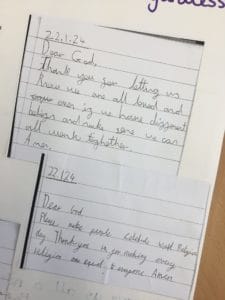 22.1.24
Dear God,
Thank you for letting us
know we are all loved and
even if we have different
beliefs and make sure we can
all work together.
Amen.
22.1.24
Dear God
Please make people celebrate World Religion
day Thankyou for making every
religion are equal &
Amen